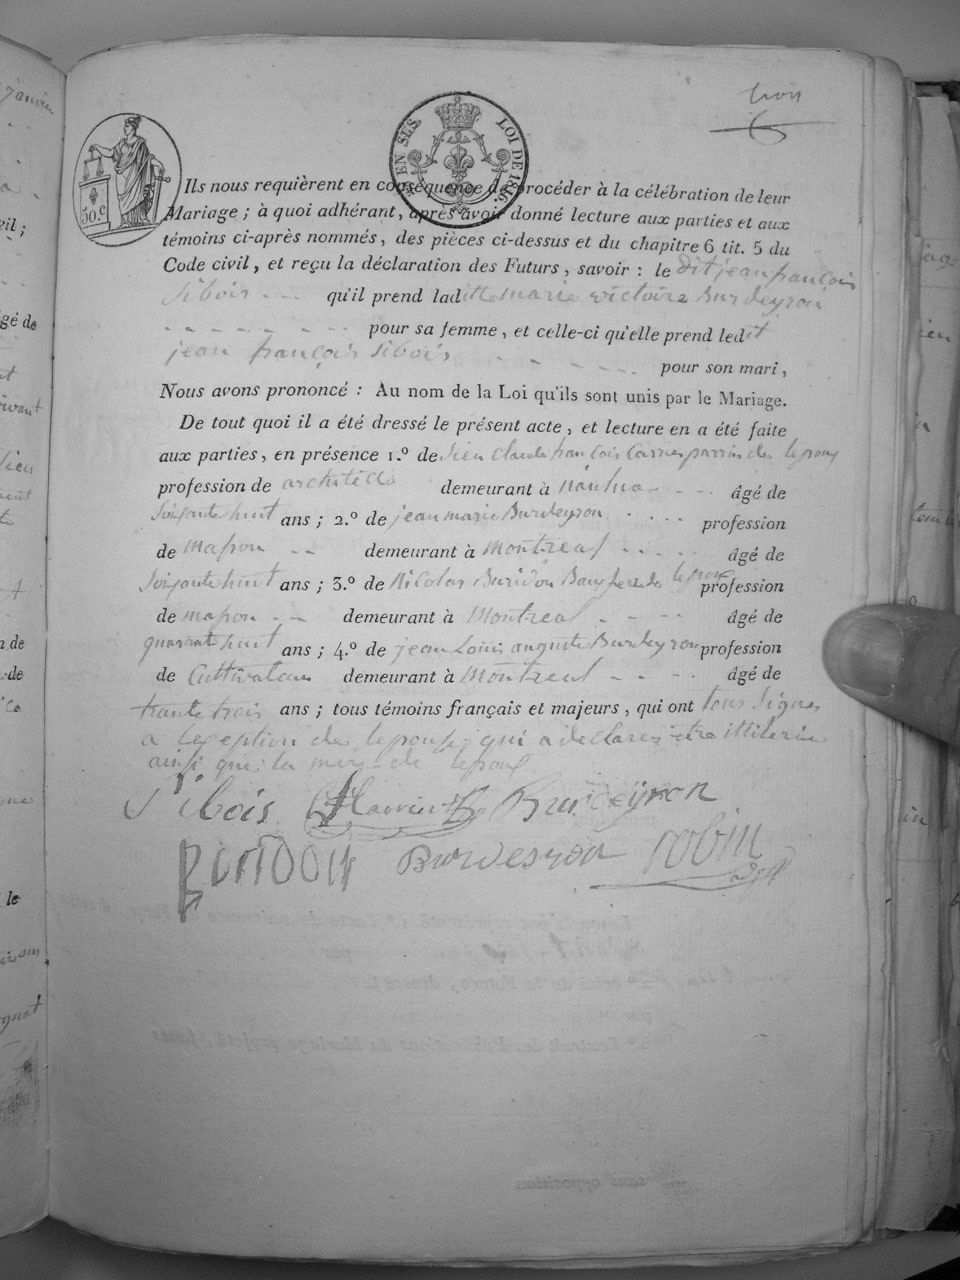 trois
6
EN SUS. LOI DE 1816.
30.c
Ils nous requièrent en conséquence de procéder à la célébration de leur
Mariage ; à quoi adhérant, après avoir donné lecture aux parties et aux
témoins ci-après nommés, des pièces ci-dessus et du chapitre 6 tit. 5 du
Code civil, et reçu la déclaration des Futurs, savoir : le dit jean françois
Sibois qu'il prend laditte marie victoire Burdeyron
pour sa femme, et celle-ci qu'elle prend ledit
jean françois Sibois
pour son mari,
Nous avons prononcé : Au nom de la Loi qu'ils sont unis par le Mariage.
De tout quoi il a été dressé le présent acte, et lecture en a été faite
aux parties, en présence 1.º de claude françois des lepoux
profession de demeurant à Nantua âgé de
Soixante huit ans ; 2.º de jean marie Burdeyron profession
de Mason demeurant à Montreal âgé de
Soixante huit ans ; 3.º de Nicolas lepoux profession
de mason demeurant à Montreal âgé de
quarante huit ans ; 4.º de jean Louis auguste Burdeyron profession
de Cultivateur demeurant à Montreal âgé de
trante trois ans ; tous témoins français et majeurs, qui ont tous Signes
a lexeption de lepouse qui a declarer etre
ainsi que la mere de lepoux
Sibois Burdeyron
Burdeyron robin